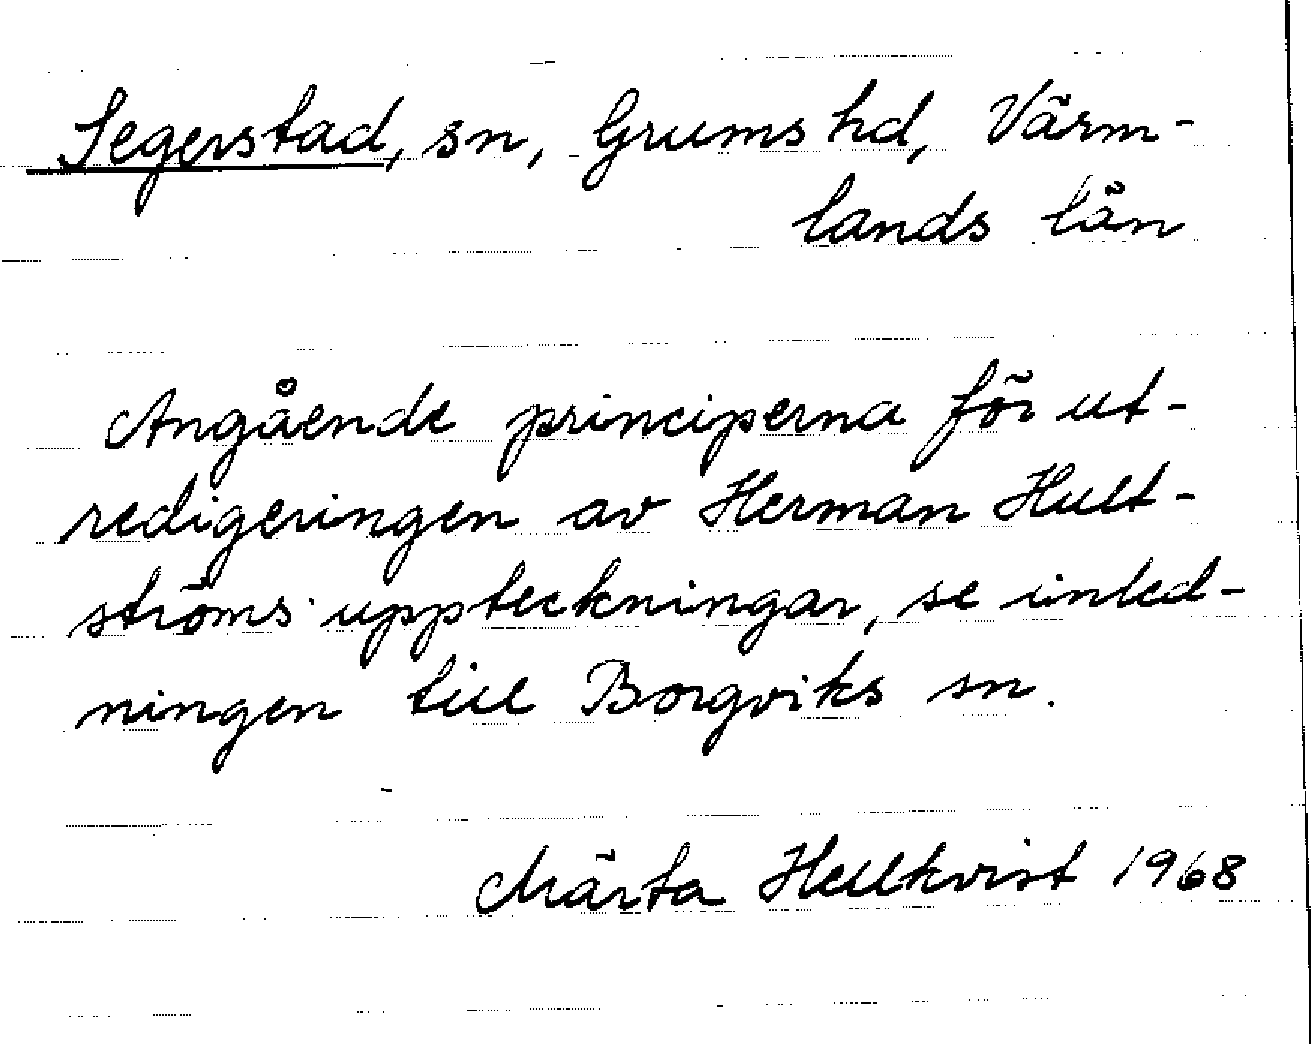 Segerstad, sn, Grums hd, Värm-
lands län
Angående principerna för ut-
redigeringen av Herman Hult-
ströms uppteckningar, se inled-
ningen till Borgviks sn.
Märta Hellkvist 1968